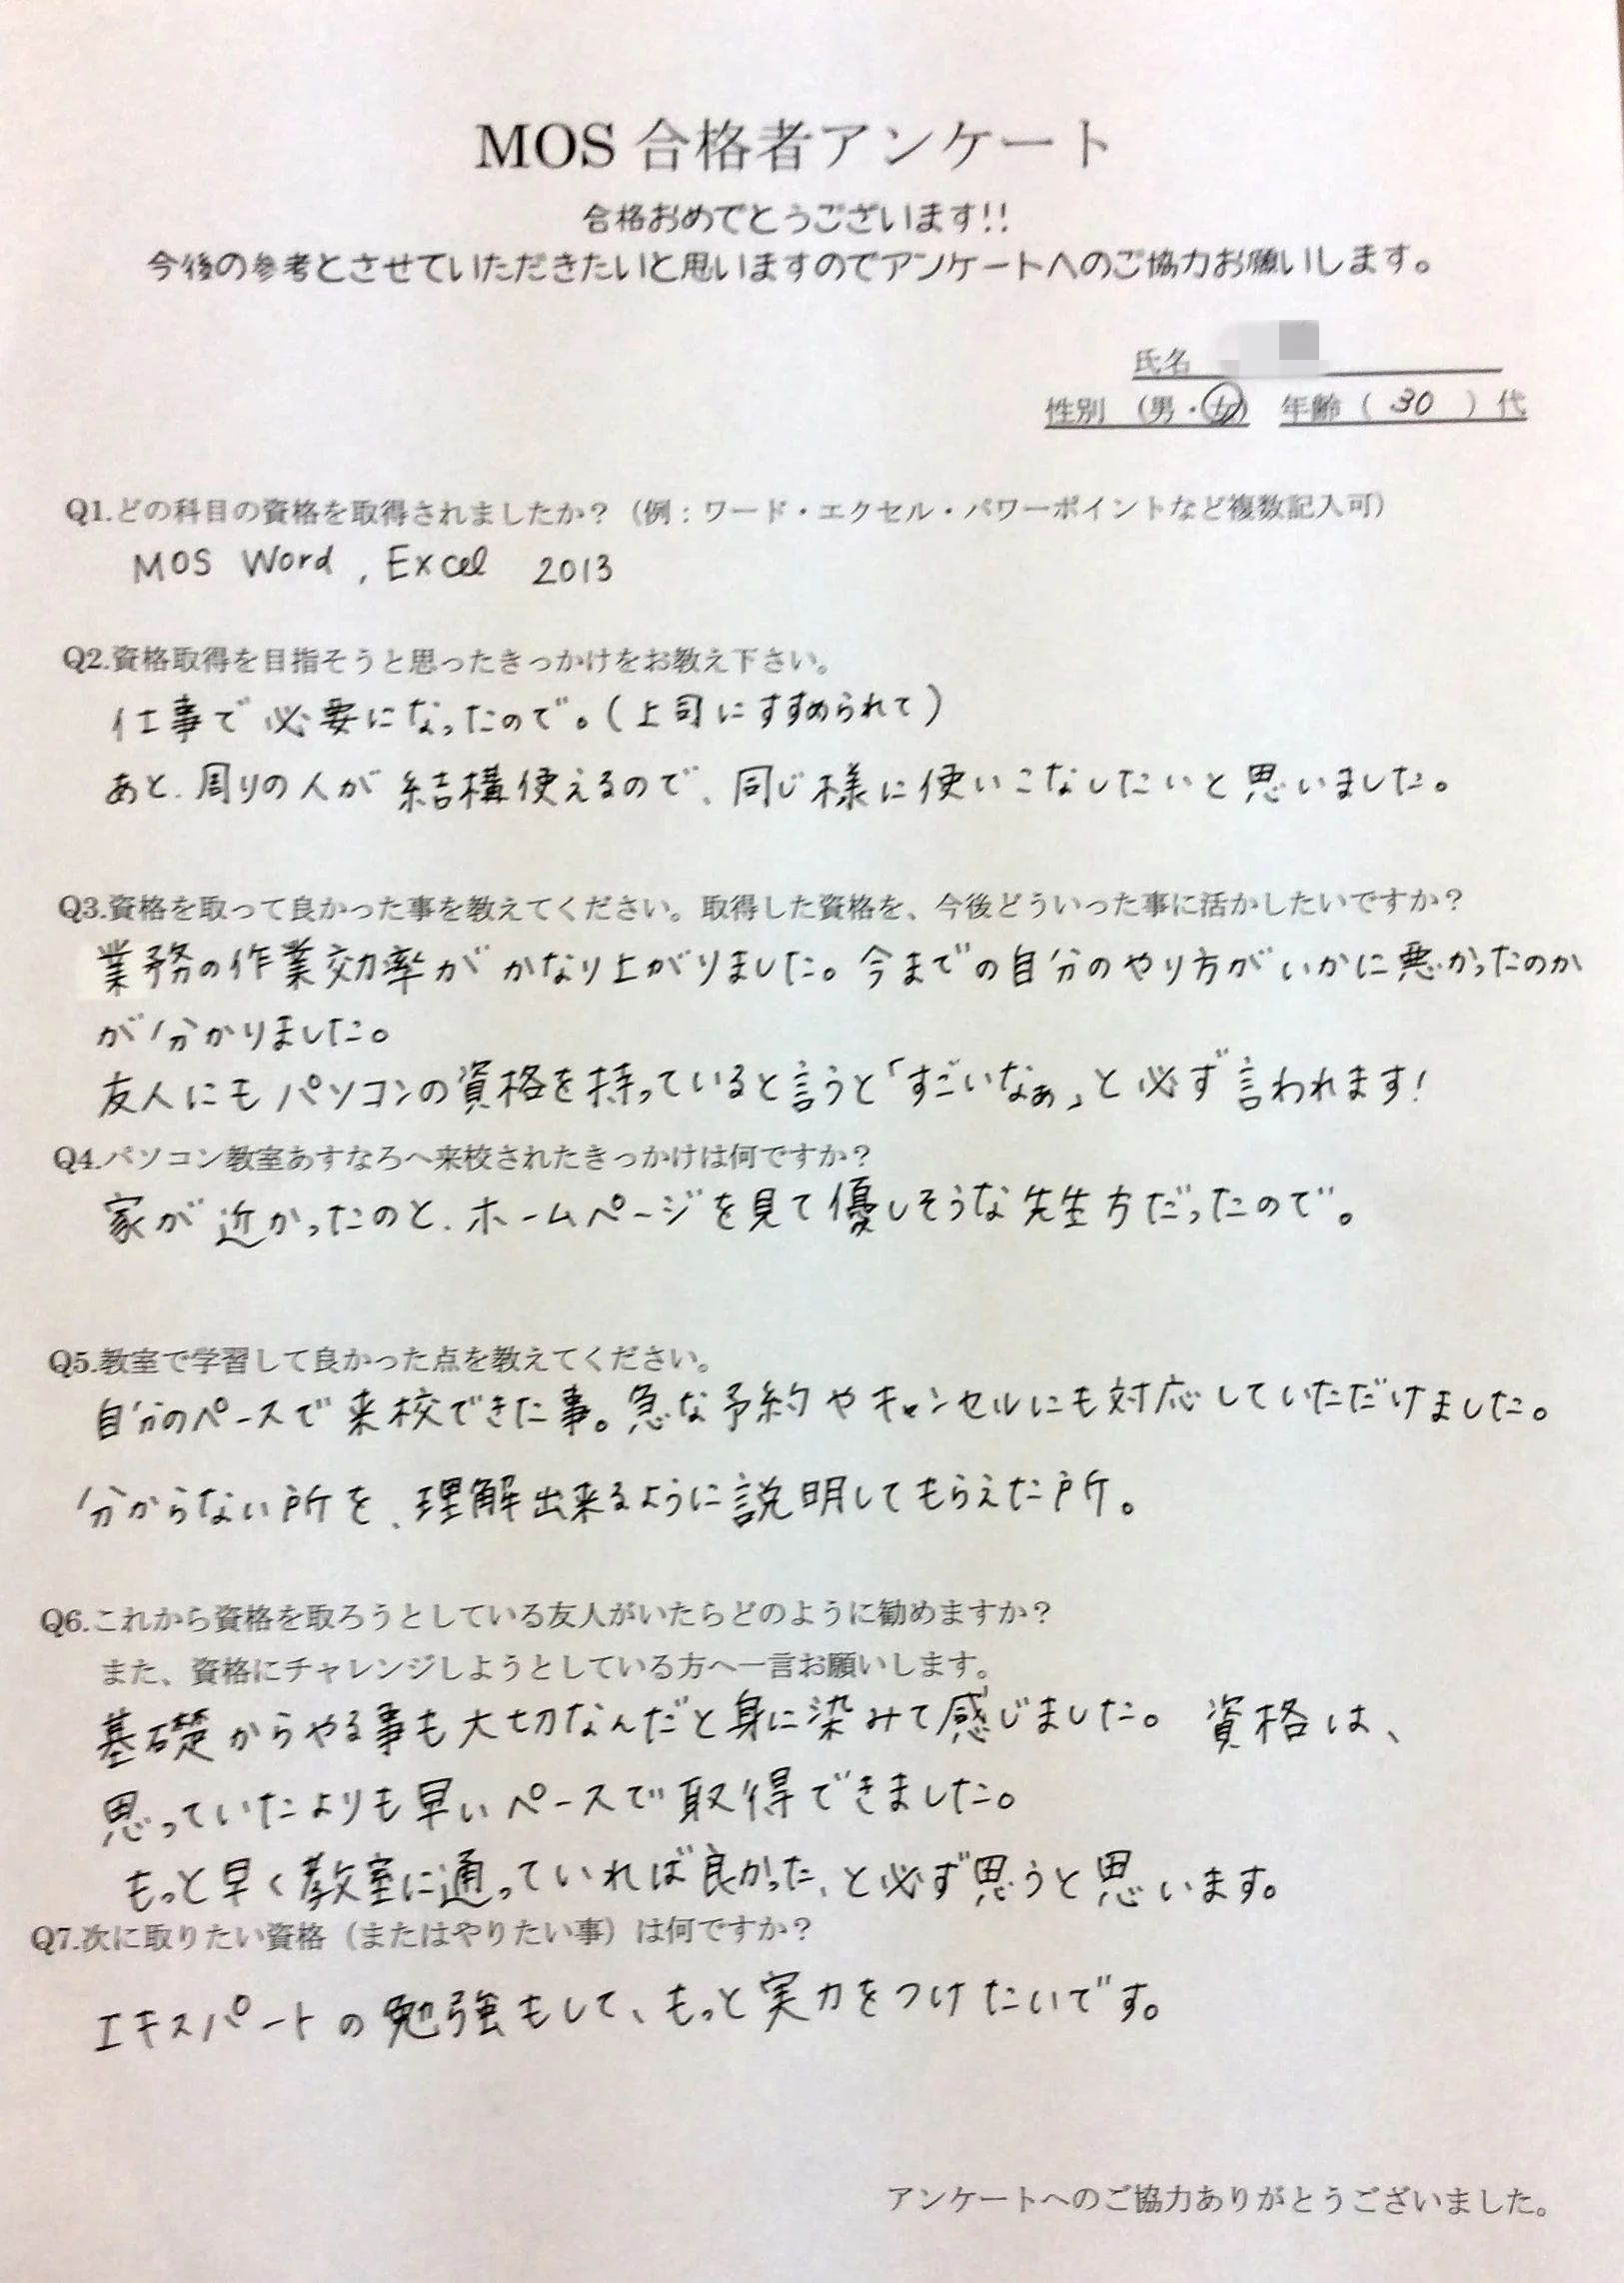 MOS 合格者アンケート
合格おめでとうございます!!
今後の参考とさせていただきたいと思いますのでアンケートへのご協力お願いします。
氏名
性別 (男・女) 年齢( 30 )代
Q1.どの科目の資格を取得されましたか?(例:ワード・エクセル・パワーポイントなど複数記入可)
MOS Word , Excel 2013
Q2.資格取得を目指そうと思ったきっかけをお教え下さい。
仕事で必要になったので。(上司にすすめられて)
あと、周りの人が結構使えるので、同じ様に使いこなしたいと思いました。
Q3.資格を取って良かった事を教えてください。取得した資格を、今後どういった事に活かしたいですか?
業務の作業効率がかなり上がりました。今までの自分のやり方がいかに悪かったのか
が分かりました。
友人にもパソコンの資格を持っていると言うと「すごいなぁ」と必ず言われます!
Q4.パソコン教室あすなろへ来校されたきっかけは何ですか?
家が近かったのと、ホームページを見て優しそうな先生方だったので。
Q5.教室で学習して良かった点を教えてください。
自分のペースで来校できた事。急な予約やキャンセルにも対応していただけました。
分からない所を、理解出来るように説明してもらえた所。
Q6.これから資格を取ろうとしている友人がいたらどのように勧めますか?
また、資格にチャレンジしようとしている方へ一言お願いします。
基礎からやる事も大切なんだと身に染みて感じました。 資格は、
思っていたよりも早いペースで取得できました。
もっと早く教室に通っていれば良かった、と必ず思うと思います。
Q7.次に取りたい資格(またはやりたい事)は何ですか?
エキスパートの勉強もして、もっと実力をつけたいです。
アンケートへのご協力ありがとうございました。